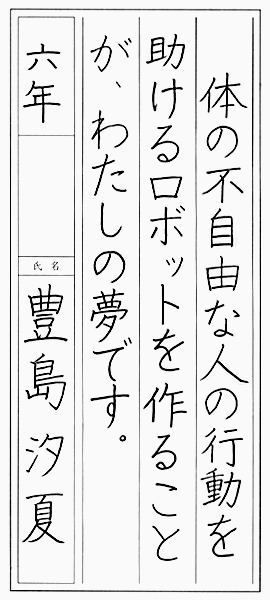 体の不自由な人の行動を
助けるロボットを作ること
が、わたしの夢です。
六年
氏名
豊島汐夏